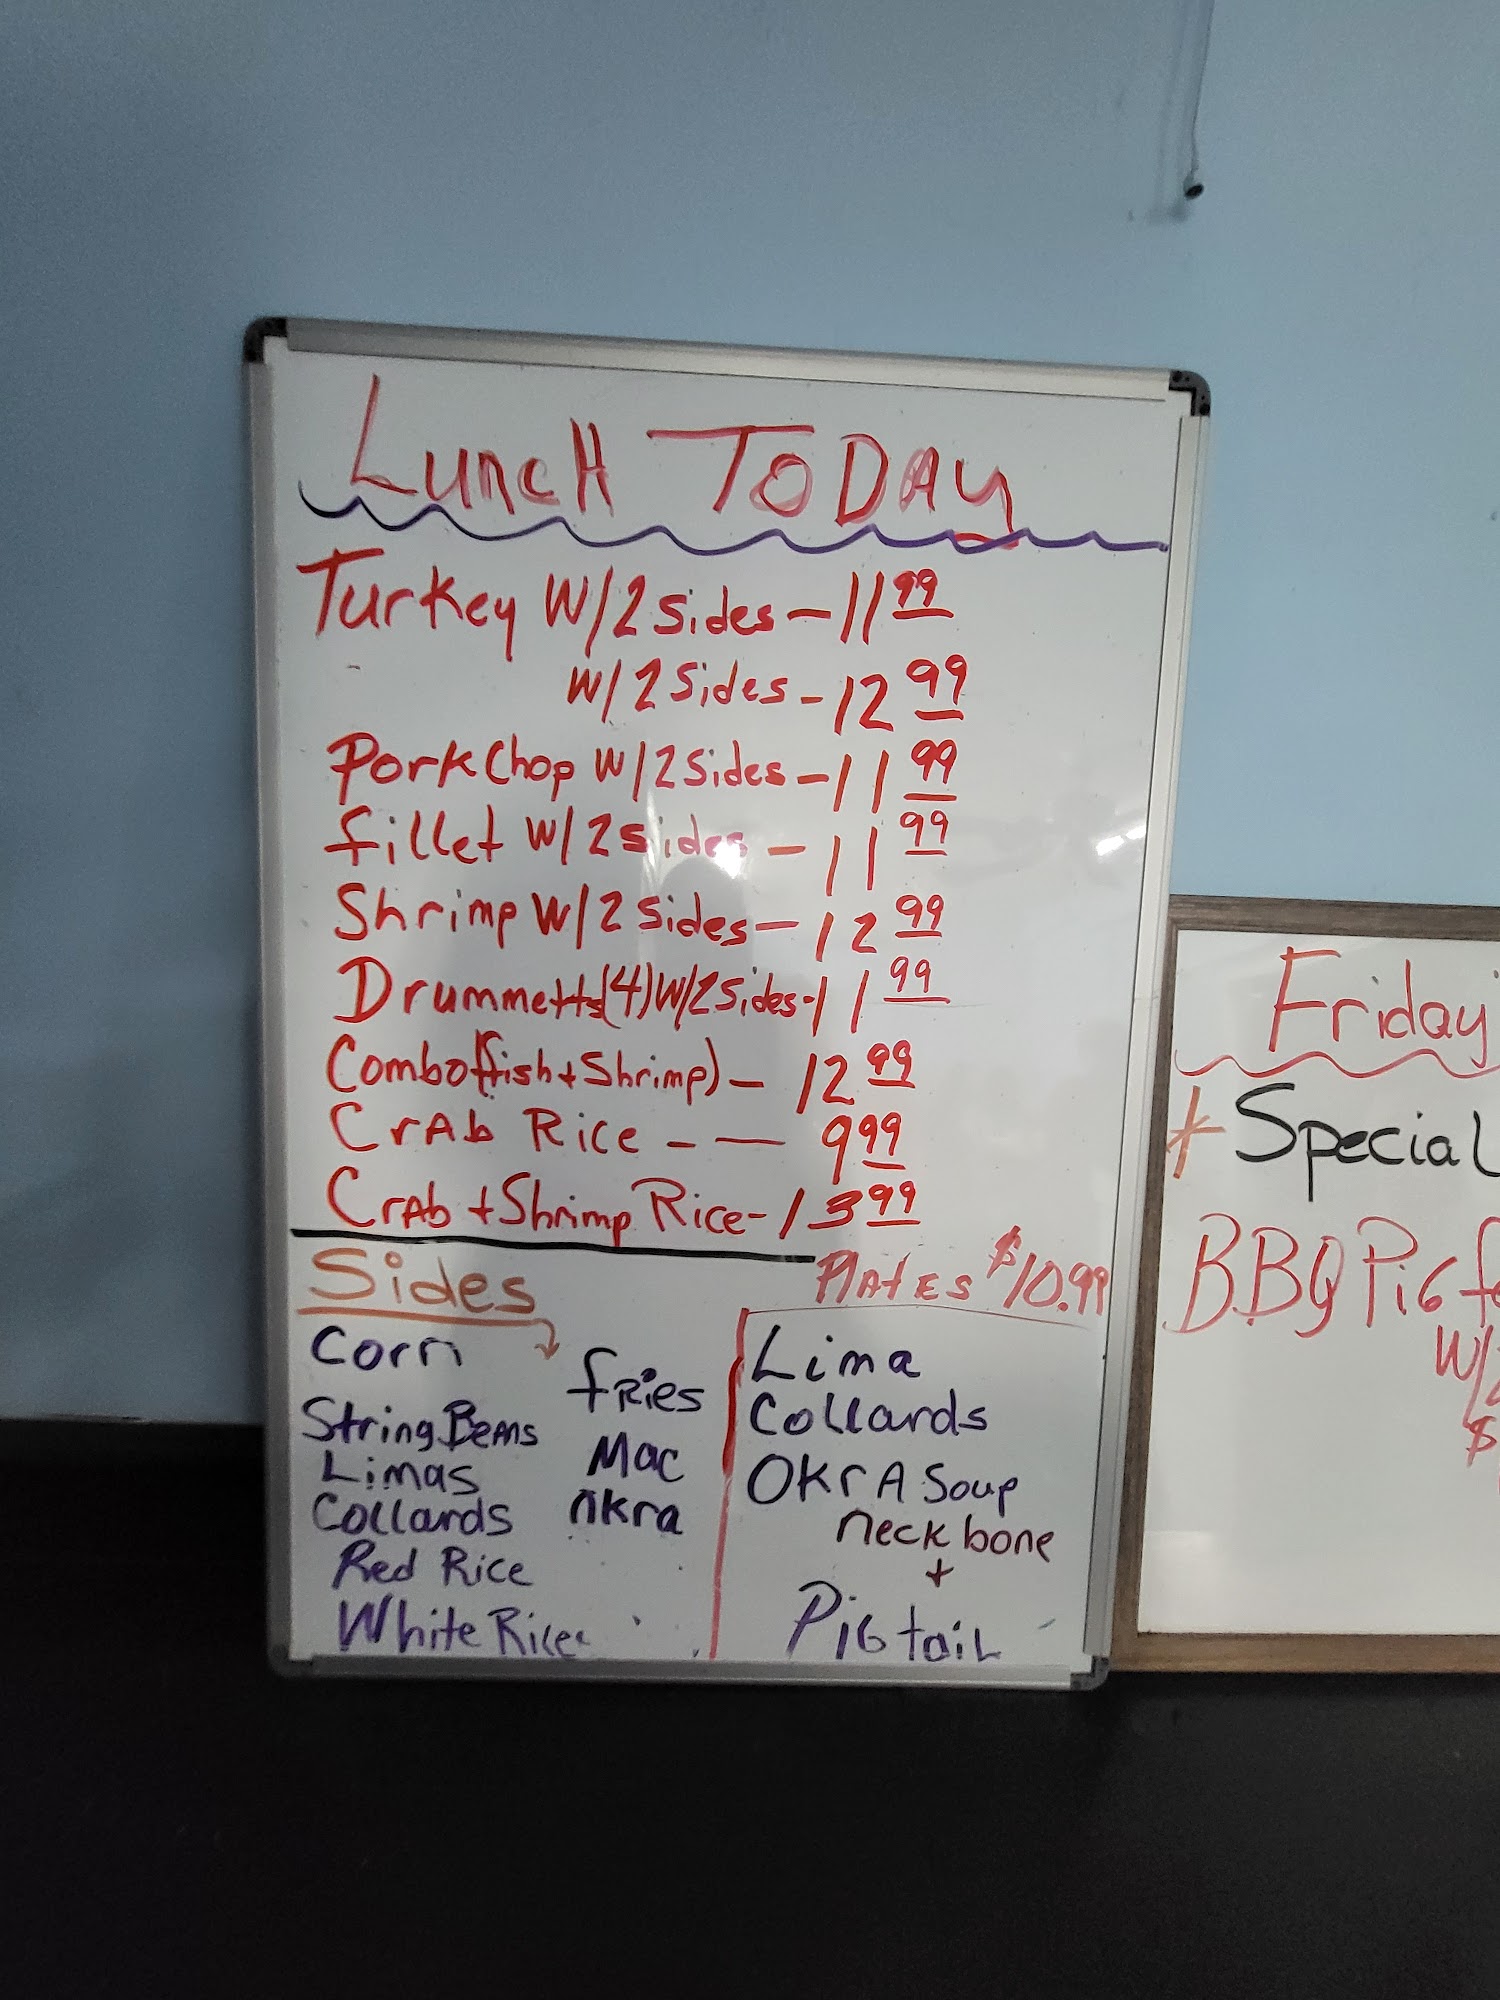 LuncH TODAy
Turkey W/2 Sides - 11 99
W/2 Sides - 12 99
PorkChop W/2 Sides - 11 99
fillet W/2 sides - 11 99
Shrimp W/2 sides - 12 99
Drummetts(4) W/2 Sides - 11 99
Combo(fish + Shrimp) - 12 99
CrAb Rice - — 9 99
CrAb + Shrimp Rice - 13 99
Sides
PlAtES $10.99
Corn
String BeAns
Limas
Collards
Red Rice
White Rice
fRies
Mac
Okra
Lima
Collards
OKrA Soup
neck bone
+
PiG taiL
Friday
* SpeciaL
BBQ PiG
W/
$